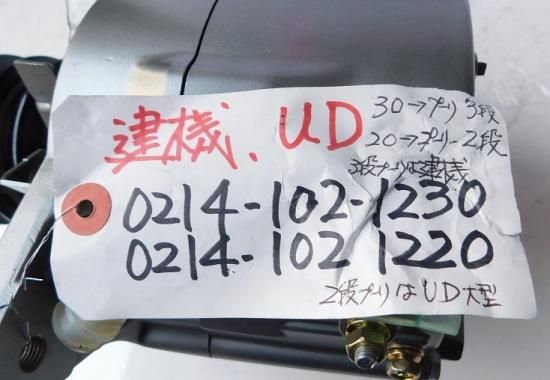 建機、UD
30→プーリ 3段
20→プーリー2段
3段プーリは建機
0214-102-1230
0214-102 1220
2段プーリはUD大型